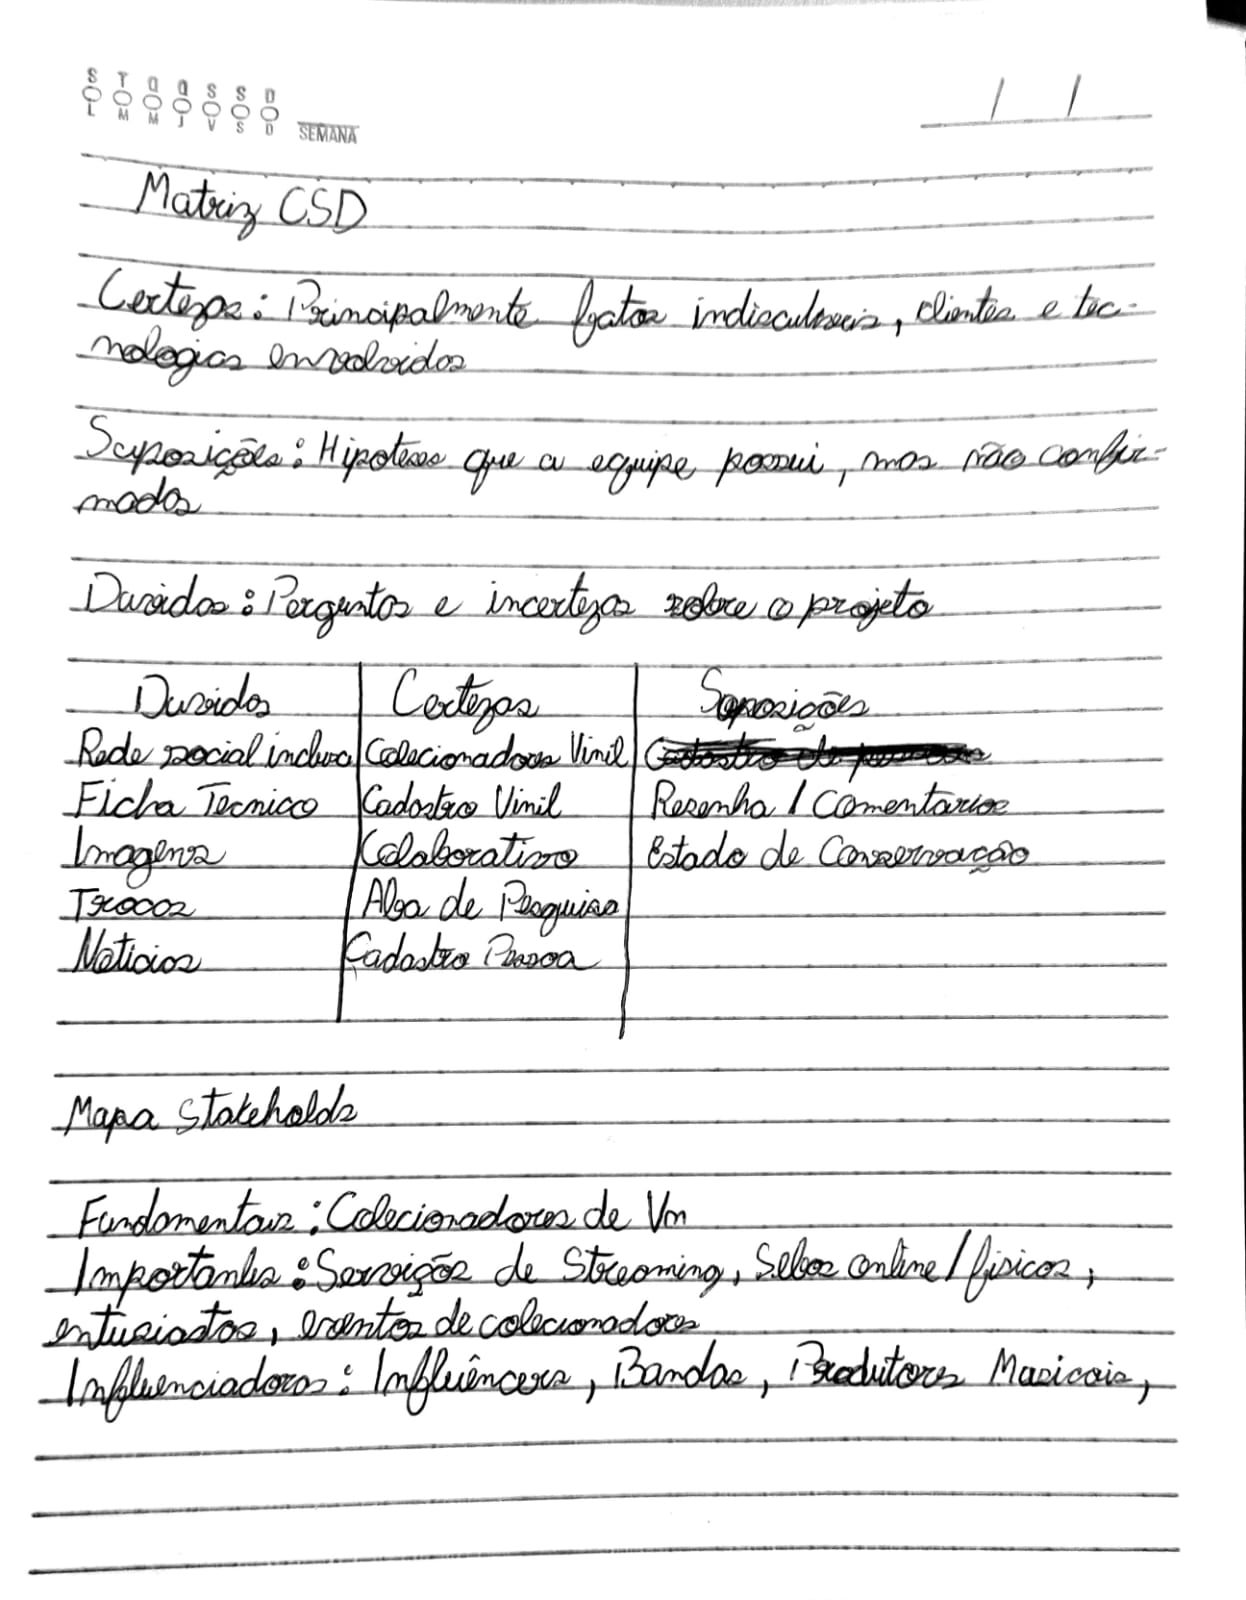 S T Q Q S S D
L M M J V S D SEMANA
/ /
Matriz CSD
Certezas: Principalmente fatos indiscultiveis, clientes e tec-
nologias envolvidos
Suposições: Hipoteses que a equipe possui, mas não confir-
madas
Duvidas: Perguntas e incertezas sobre o projeto
Duvidas Certezas Soposições
Rede social inclusa Colecionadores Vinil
Ficha Tecnico Cadastro Vinil Resenha / Comentarios
Imagens Colaborativo Estado de Conservação
Trocas Aba de Pesquisa
Noticias Cadastro Pessoa
Mapa Stakeholds
Fundamentais: Colecionadores de Vm
Importantes: Serviços de Streaming, Sebos online/fisicos,
entusiastas, eventos de colecionadores
Influenciadores: Influêncers, Bandas, Produtores Musicais,